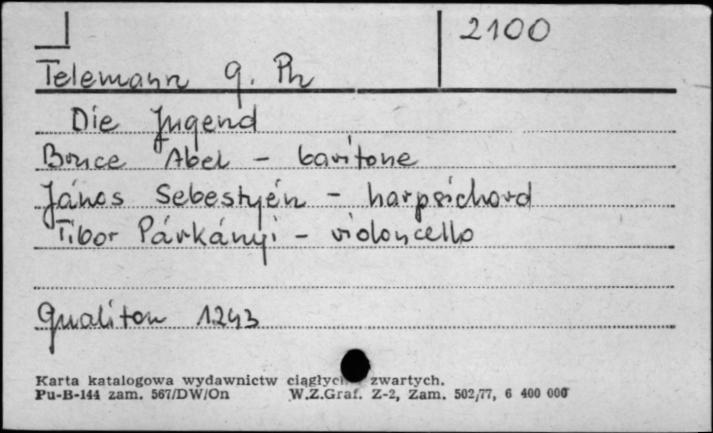 2100
Telemann G. Ph
Die Jugend
Bruce Abel - baritone
János Sebestyén - harpsichord
Tibor Párkányi - violoncello
Qualiton 1243
Karta katalogowa wydawnictw ciągłych zwartych.
Pu-B-144 zam. 567/DW/On W.Z.Graf. Z-2, Zam. 502/77, 6 400 000